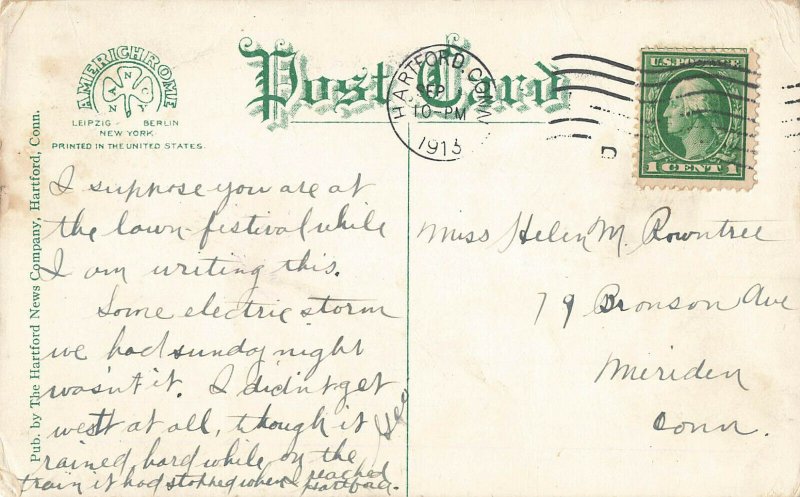 AMERICHROME
A N C
LEIPZIG BERLIN
NEW YORK
PRINTED IN THE UNITED STATES.
Post Card
HARTFORD, CONN.
SEP
10-PM
1913
U.S. POSTAGE
1 CENT 1
Pub. by The Hartford News Company, Hartford, Conn.
I suppose you are at
the lawn-festival while
I am writing this.
Some electric storm
we had sunday night
wasn't it. I didn't get
wet at all, though it
rained hard while on the
train it had stopped when I reached
Hartford.
Miss Helen M. Rowntree
79 Bronson Ave
Meriden
Conn.